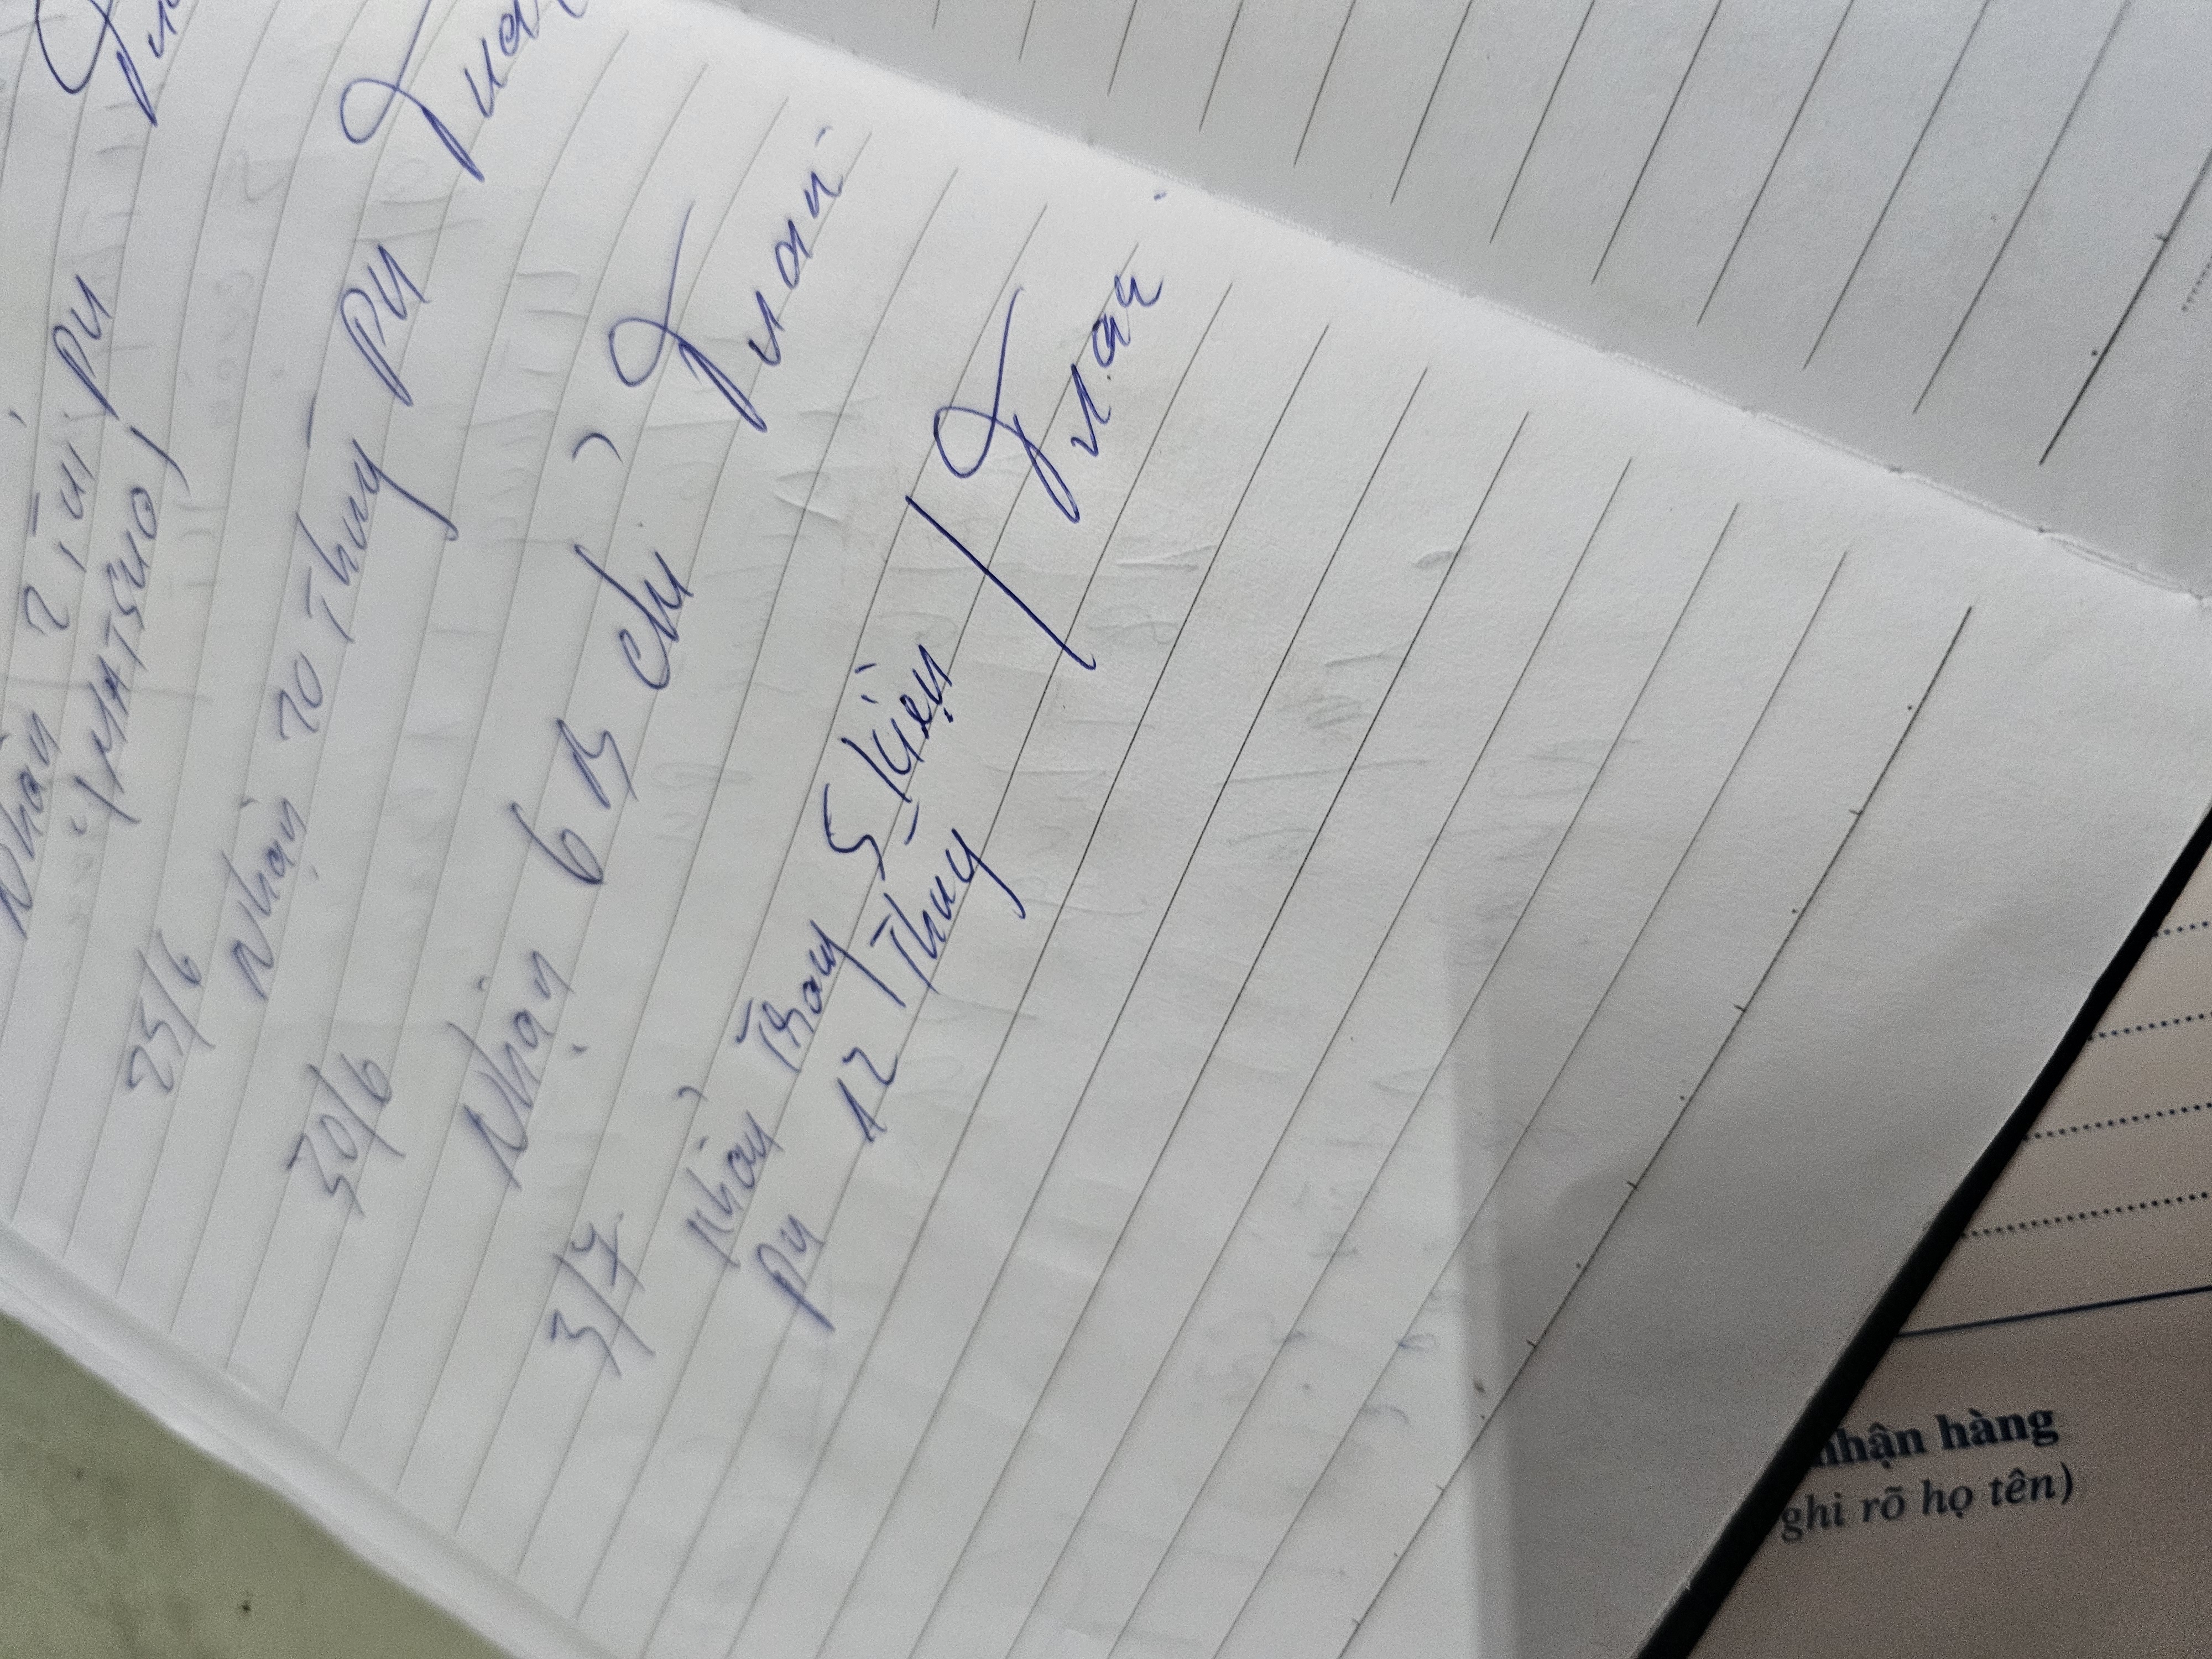 Nhận 2 Túi PU
(MATSUO)
25/6
Nhận 20 Thùng PU
30/6
Nhận 6 B chỉ Tuấn
3/7
Nhận 5 kiện Tuấn
PU 12 Thùng
nhận hàng
ghi rõ họ tên)